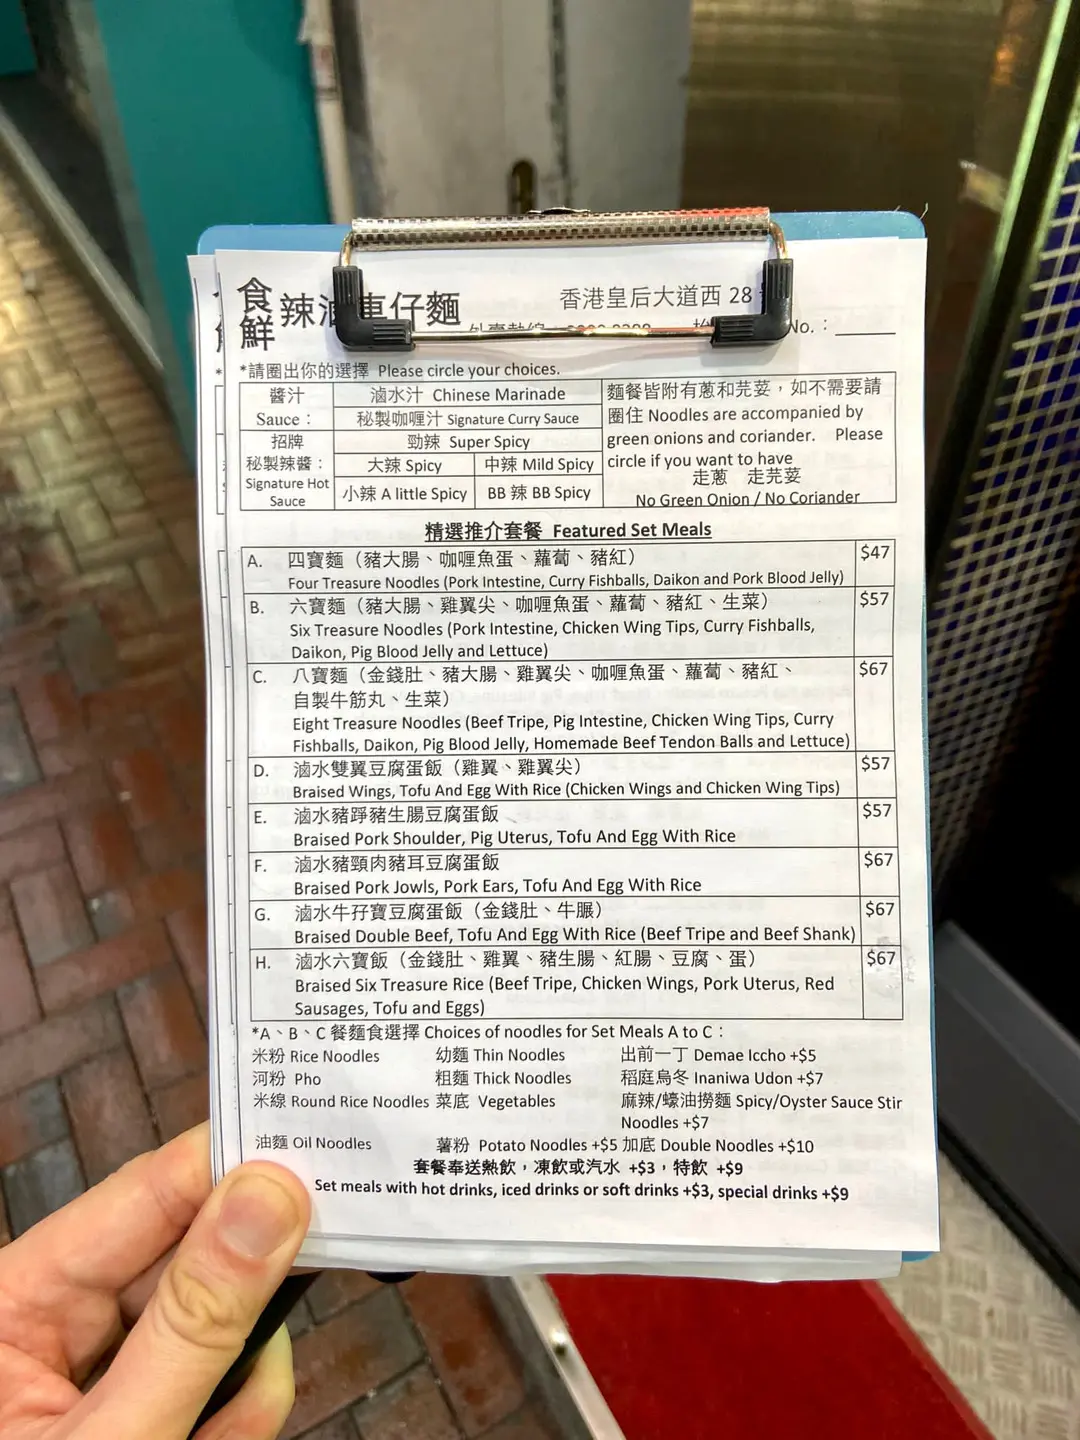 食鮮 辣 車仔麵
香港皇后大道西 28
No.：
*請圈出你的選擇 Please circle your choices.
醬汁 Sauce：
滷水汁 Chinese Marinade
秘製咖喱汁 Signature Curry Sauce
招牌
秘製辣醬：
Signature Hot
Sauce
勁辣 Super Spicy
大辣 Spicy 中辣 Mild Spicy
小辣 A little Spicy BB 辣 BB Spicy
麵餐皆附有蔥和芫荽，如不需要請
圈住 Noodles are accompanied by
green onions and coriander. Please
circle if you want to have
走蔥 走芫荽
No Green Onion / No Coriander
精選推介套餐 Featured Set Meals
A. 四寶麵（豬大腸、咖喱魚蛋、蘿蔔、豬紅） $47
Four Treasure Noodles (Pork Intestine, Curry Fishballs, Daikon and Pork Blood Jelly)
B. 六寶麵（豬大腸、雞翼尖、咖喱魚蛋、蘿蔔、豬紅、生菜） $57
Six Treasure Noodles (Pork Intestine, Chicken Wing Tips, Curry Fishballs,
Daikon, Pig Blood Jelly and Lettuce)
C. 八寶麵（金錢肚、豬大腸、雞翼尖、咖喱魚蛋、蘿蔔、豬紅、 $67
自製牛筋丸、生菜）
Eight Treasure Noodles (Beef Tripe, Pig Intestine, Chicken Wing Tips, Curry
Fishballs, Daikon, Pig Blood Jelly, Homemade Beef Tendon Balls and Lettuce)
D. 滷水雙翼豆腐蛋飯（雞翼、雞翼尖） $57
Braised Wings, Tofu And Egg With Rice (Chicken Wings and Chicken Wing Tips)
E. 滷水豬踭豬生腸豆腐蛋飯 $57
Braised Pork Shoulder, Pig Uterus, Tofu And Egg With Rice
F. 滷水豬頸肉豬耳豆腐蛋飯 $67
Braised Pork Jowls, Pork Ears, Tofu And Egg With Rice
G. 滷水牛孖寶豆腐蛋飯（金錢肚、牛𦟌） $67
Braised Double Beef, Tofu And Egg With Rice (Beef Tripe and Beef Shank)
H. 滷水六寶飯（金錢肚、雞翼、豬生腸、紅腸、豆腐、蛋） $67
Braised Six Treasure Rice (Beef Tripe, Chicken Wings, Pork Uterus, Red
Sausages, Tofu and Eggs)
*A、B、C 餐麵食選擇 Choices of noodles for Set Meals A to C：
米粉 Rice Noodles 幼麵 Thin Noodles 出前一丁 Demae Iccho +$5
河粉 Pho 粗麵 Thick Noodles 稻庭烏冬 Inaniwa Udon +$7
米線 Round Rice Noodles 菜底 Vegetables 麻辣/蠔油撈麵 Spicy/Oyster Sauce Stir
Noodles +$7
油麵 Oil Noodles 薯粉 Potato Noodles +$5 加底 Double Noodles +$10
套餐奉送熱飲，凍飲或汽水 +$3，特飲 +$9
Set meals with hot drinks, iced drinks or soft drinks +$3, special drinks +$9